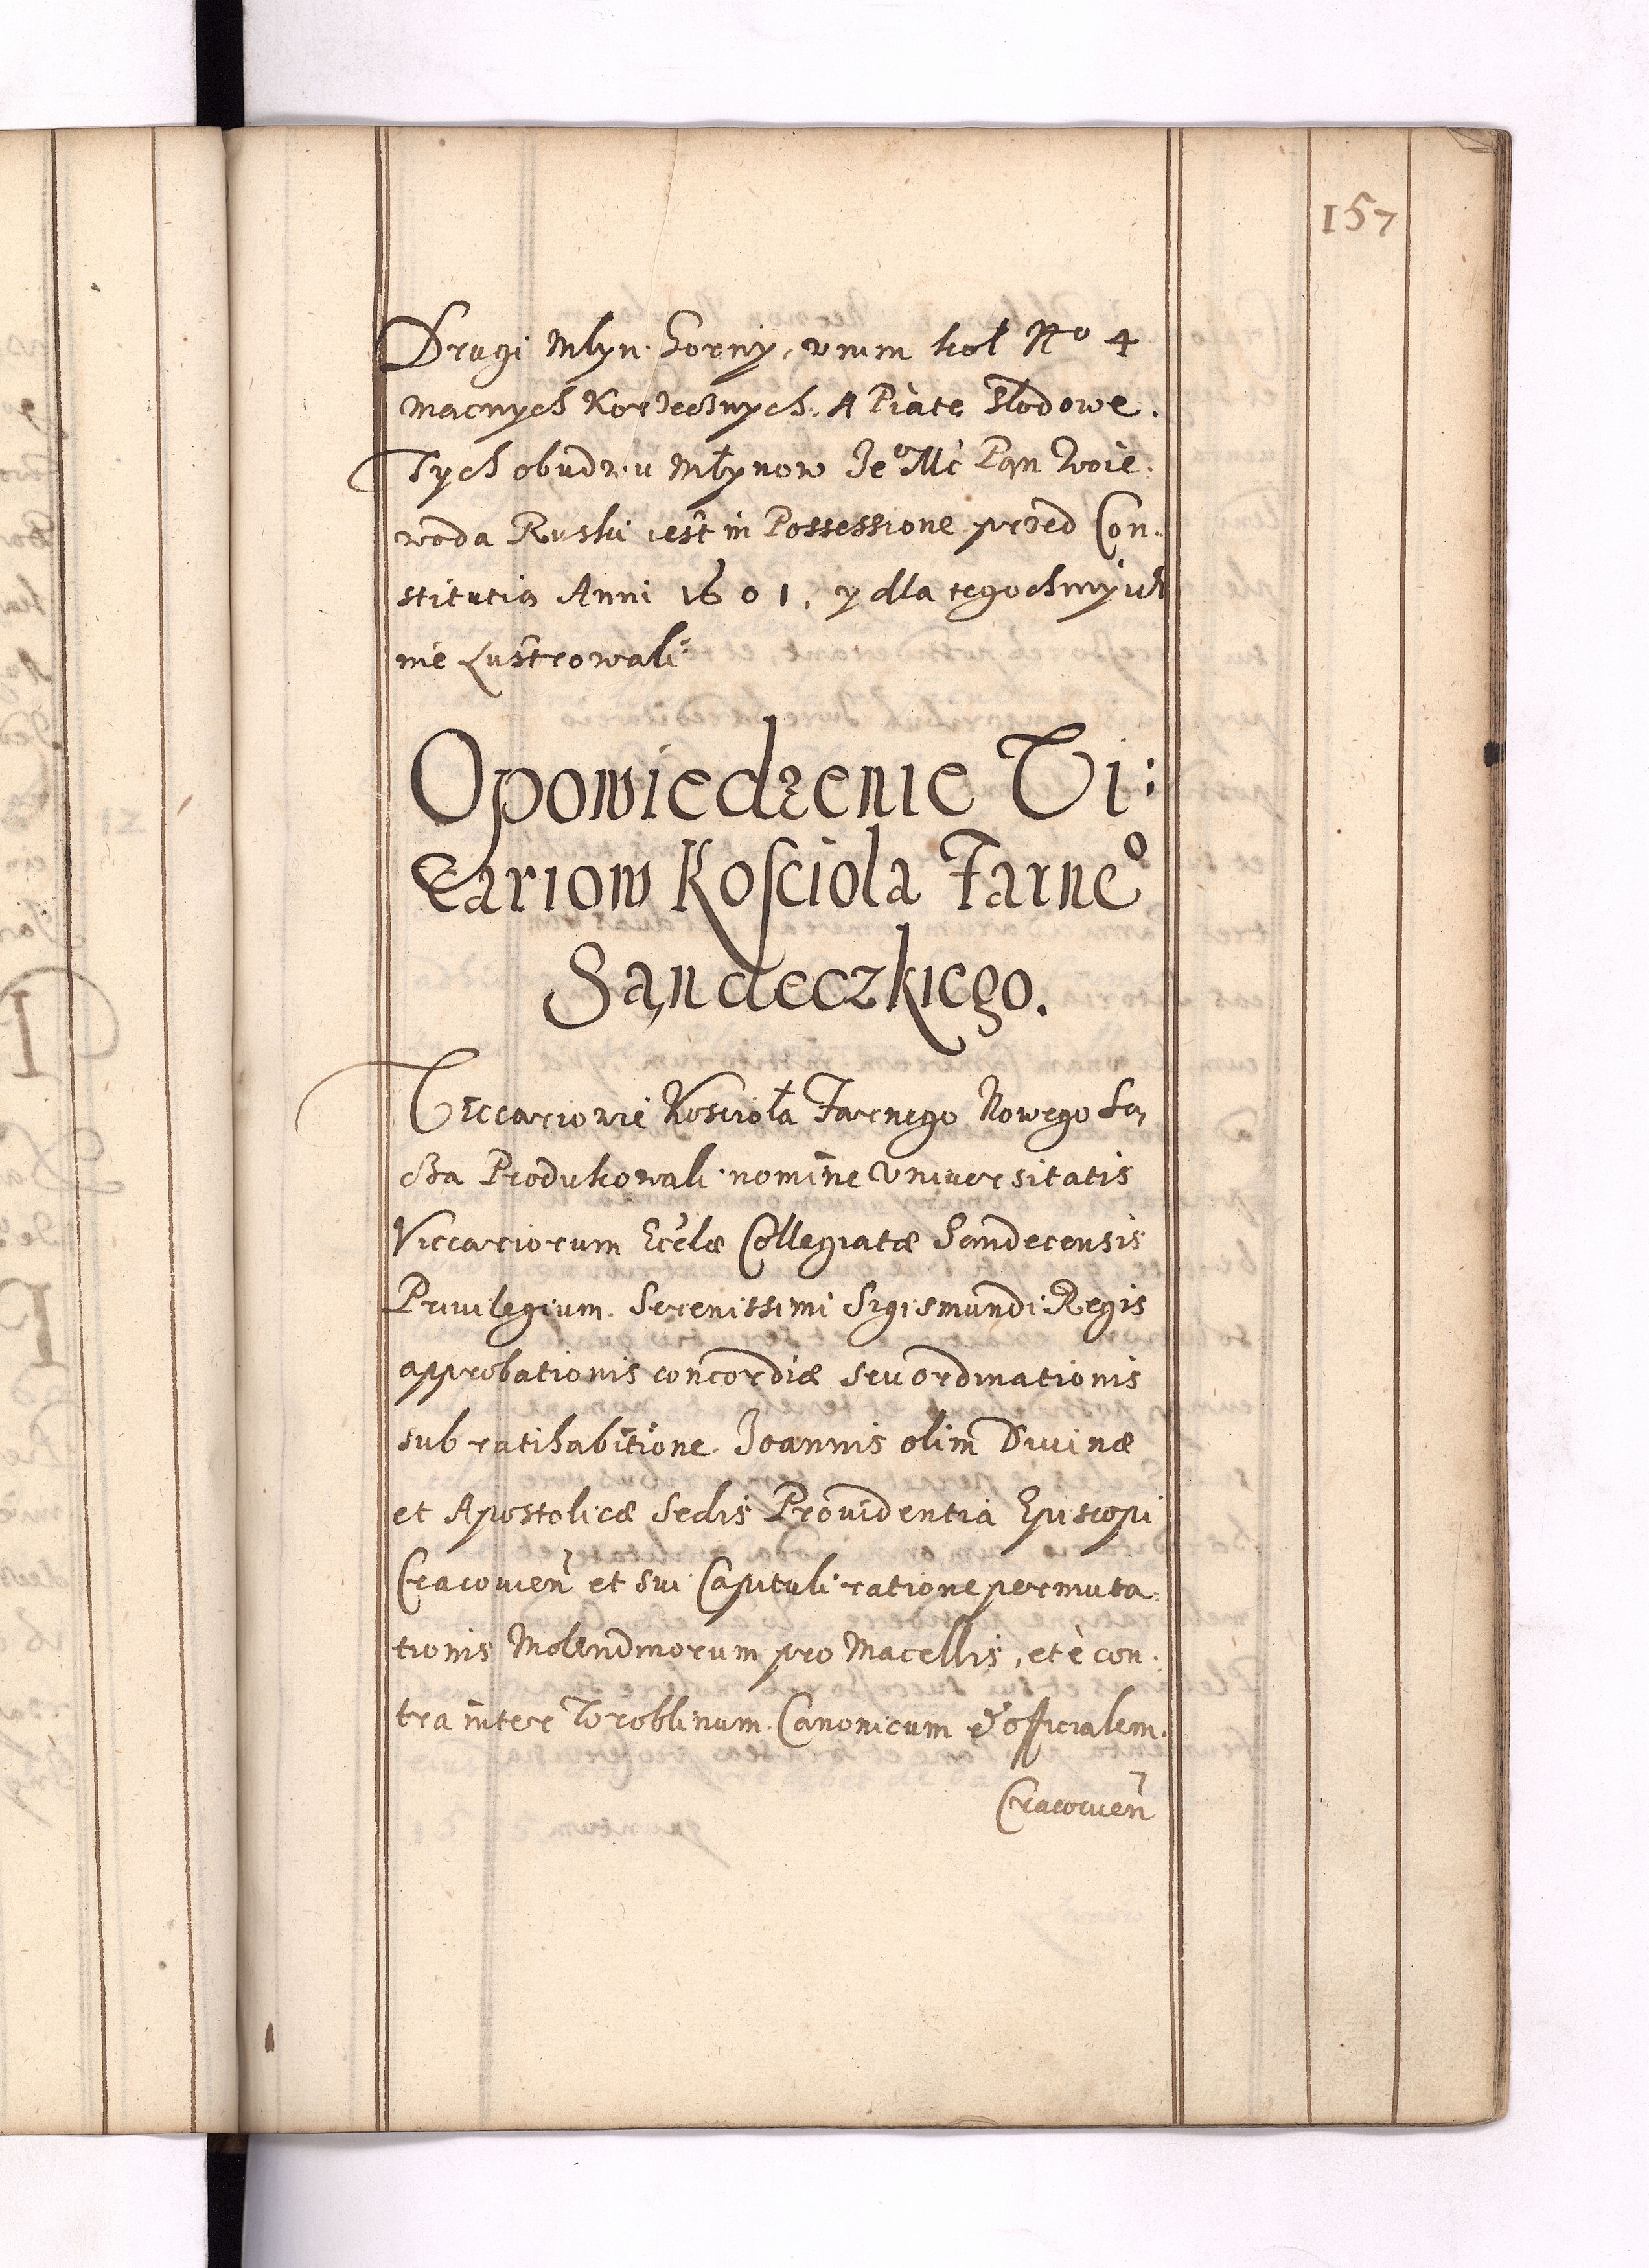 157
Drugi Młyn Gorny, w nim koł No 4
macnych Korzecznych. A Piąte Słodowe.
Tych obudwu Młynow Jeo Mć Pan Woie:
woda Ruski iest in Possessione przed Con:
stitutią Anni 1601, y dla tegochmy ich
nie Lustrowali
Opowiedzenie Vi:
cariow Kosciola Farneo
Sandeczkiego.
Viccariowie Koscioła Farnego Nowego Są,
cza Produkowali nomine Vniuersitatis
Viccariorum Eccłæ Collegiatæ Sandecensis
Priuilegium Serenissimi Sigismundi Regis
approbationis concordiæ seu ordinationis
sub ratihabitione Joannis olim Diuinæ
et Apostolicæ Sedis Prouidentia Episcopi
Cracouien et sui Capituli ratione permuta:
tionis Molendinorum pro Macellis, et è con:
tra inter Wroblinum Canonicum & officialem
Cracouien